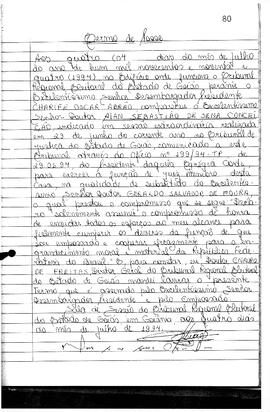 80
Termo de Posse
Aos quatro (04) dias do mês de julho
do ano de hum mil novecentos e noventa e
quatro (1994) no Edifício onde funciona o Tribunal
Regional Eleitoral do Estado de Goiás, perante o
Excelentíssimo Senhor Desembargador Presidente
CHARIFE OSCAR ABRÃO, compareceu o Excelentíssimo
Senhor Doutor ALAN SEBASTIÃO DE SENA CONCEI-
ÇÃO, indicado em sessão extraordinária realizada
em 23 de junho do corrente ano no Tribunal de
Justiça do Estado de Goiás, comunicado a este
Tribunal através do Ofício nº
para exercer a função de Juiz membro desta
Casa, na qualidade de substituto do Excelentís-
simo Senhor Doutor GERALDO SALVADOR DE MOURA,
o qual prestou o compromisso que se segue
solenemente assumir o compromisso de honra
de envidar todos os esforços ao meu alcance para
fielmente cumprir os deveres da função de que
sou empossado e cooperar eficazmente para o en-
grandecimento moral e material da República Fede-
rativa do Brasil". E, para constar, eu
DE FREITAS, Diretor Geral do Tribunal Regional Eleitoral
do Estado de Goiás, mandei lavrar o presente
Termo que é assinado pelo Excelentíssimo Senhor
Desembargador Presidente e pelo Empossado.
Sala de Sessão do Tribunal Regional Eleitoral
do Estado de Goiás, em Goiânia, aos quatro dias
do mês de julho de 1994.